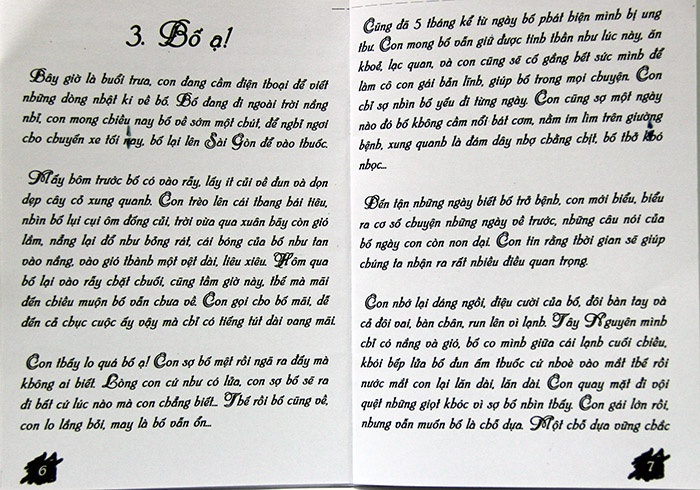 3. Bố ạ!
Bây giờ là buổi trưa, con đang cầm điện thoại để viết
những dòng nhật kí về bố. Bố đang đi ngoài trời nắng
nhỉ, con mong chiều nay bố về sớm một chút, để nghỉ ngơi
cho chuyến xe tối nay, bố lại lên Sài Gòn để vào thuốc.
Mấy bôm trước bố có vào rẫy, lấy ít củi về đun và dọn
dẹp cây cỏ xung quanh. Con trèo lên cái thang hái tiêu,
nhìn bố lụi cụi ôm đống củi, trời vừa qua xuân bãy còn gió
lắm, nắng lại đổ như bỏng rát, cái bóng của bố như tan
vào nắng, vào gió thành một vệt dài, liêu xiêu. Hôm qua
bố lại vào rẫy chặt chuối, cũng tầm giờ này, thế mà mãi
đến chiều muộn bố vẫn chưa về. Con gọi cho bố mãi, dễ
đến cả chục cuộc ấy vậy mà chỉ có tiếng tút dài vang mãi.
Con thấy lo quá bố ạ! Con sợ bố mệt rồi ngã ra đấy mà
không ai biết. Lòng con cứ như có lửa, con sợ bố sẽ ra
đi bất cứ lúc nào mà con chẳng biết... Thế rồi bố cũng về,
con lo lắng hỏi, may là bố vẫn ổn...
6
Cũng đã 5 tháng kể từ ngày bố phát hiện mình bị ung
thư. Con mong bố vẫn giữ được tinh thần như lúc này, ăn
khoẻ, lạc quan, và con cũng sẽ cố gắng hết sức mình để
làm cô con gái bản lĩnh, giúp bố trong mọi chuyện. Con
chỉ sợ nhìn bố yếu đi từng ngày. Con cũng sợ một ngày
nào đó bố không cầm nổi bát cơm, nằm im lìm trên giường
bệnh, xung quanh là đám dây nhợ chằng chịt, bố thở khó
nhọc...
Đến tận những ngày biết bố trở bệnh, con mới hiểu, hiểu
ra cơ số chuyện những ngày về trước, những câu nói của
bố ngày con còn non dại. Con tin rằng thời gian sẽ giúp
chúng ta nhận ra rất nhiều điều quan trọng.
Con nhớ lại dáng ngồi, điệu cười của bố, đôi bàn tay và
cả đôi vai, bàn chân, run lên vì lạnh. Tây Nguyên mình
chỉ có nắng và gió, bố co mình giữa cái lạnh cuối chiều,
khói bếp lửa bố đun ấm thuốc cứ nhoè vào mắt thế rồi
nước mắt con lại lăn dài, lăn dài. Con quay mặt đi vội
quệt những giọt khóc vì sợ bố nhìn thấy. Con gái lớn rồi,
nhưng vẫn muốn bố là chỗ dựa. Một chỗ dựa vững chắc
7